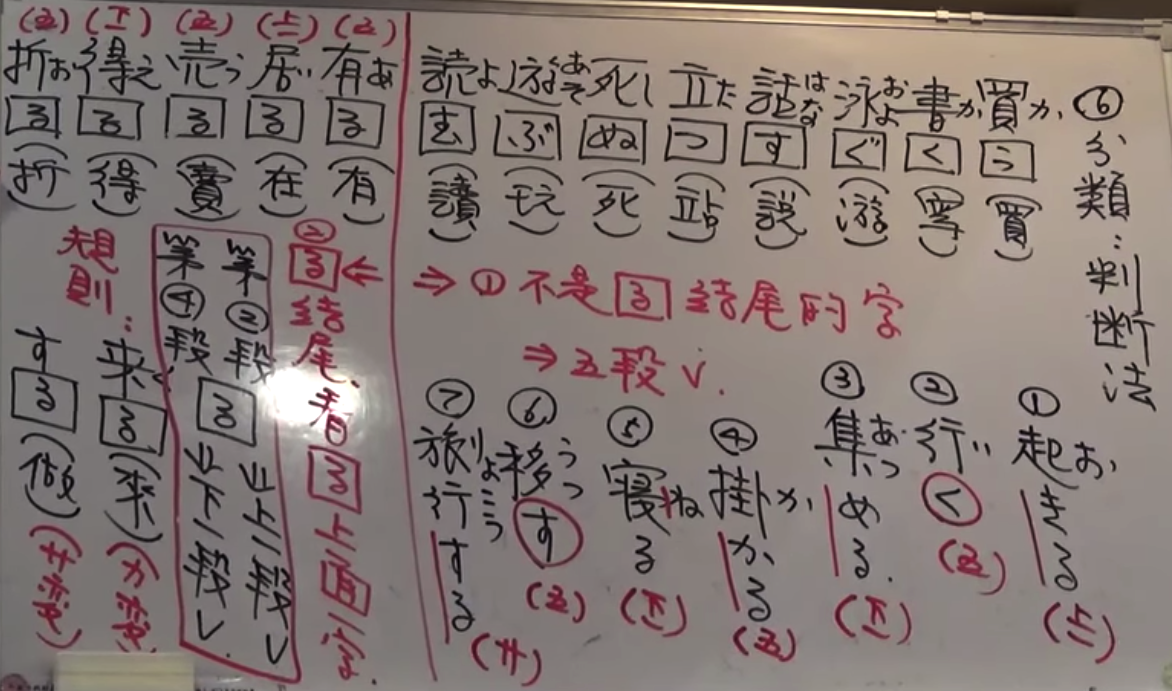 ⑥分類:判断法
買かう(買)
書かく(寫)
泳およぐ(游)
話はなす(說)
立たつ(站)
死しぬ(死)
遊あそぶ(玩)
読よむ(讀)
⇒①不是る結尾的字
⇒五段V.
①起おきる(上一)
②行いく(五)
③集あつめる.(下一)
④掛かかる(五)
⑤寝ねる(下一)
⑥移うつす(五)
⑦旅行りょこうする(サ)
(五)有ある(有)
(上一)居いる(在)
(五)売うる(賣)
(下一)得える(得)
(五)折おる(折)
⇐②る結尾,看る上面一字.
第②段る⇒上一段V
第④段る⇒下一段V.
規則:
来くる(來)(カ変)
する(做)(サ変)